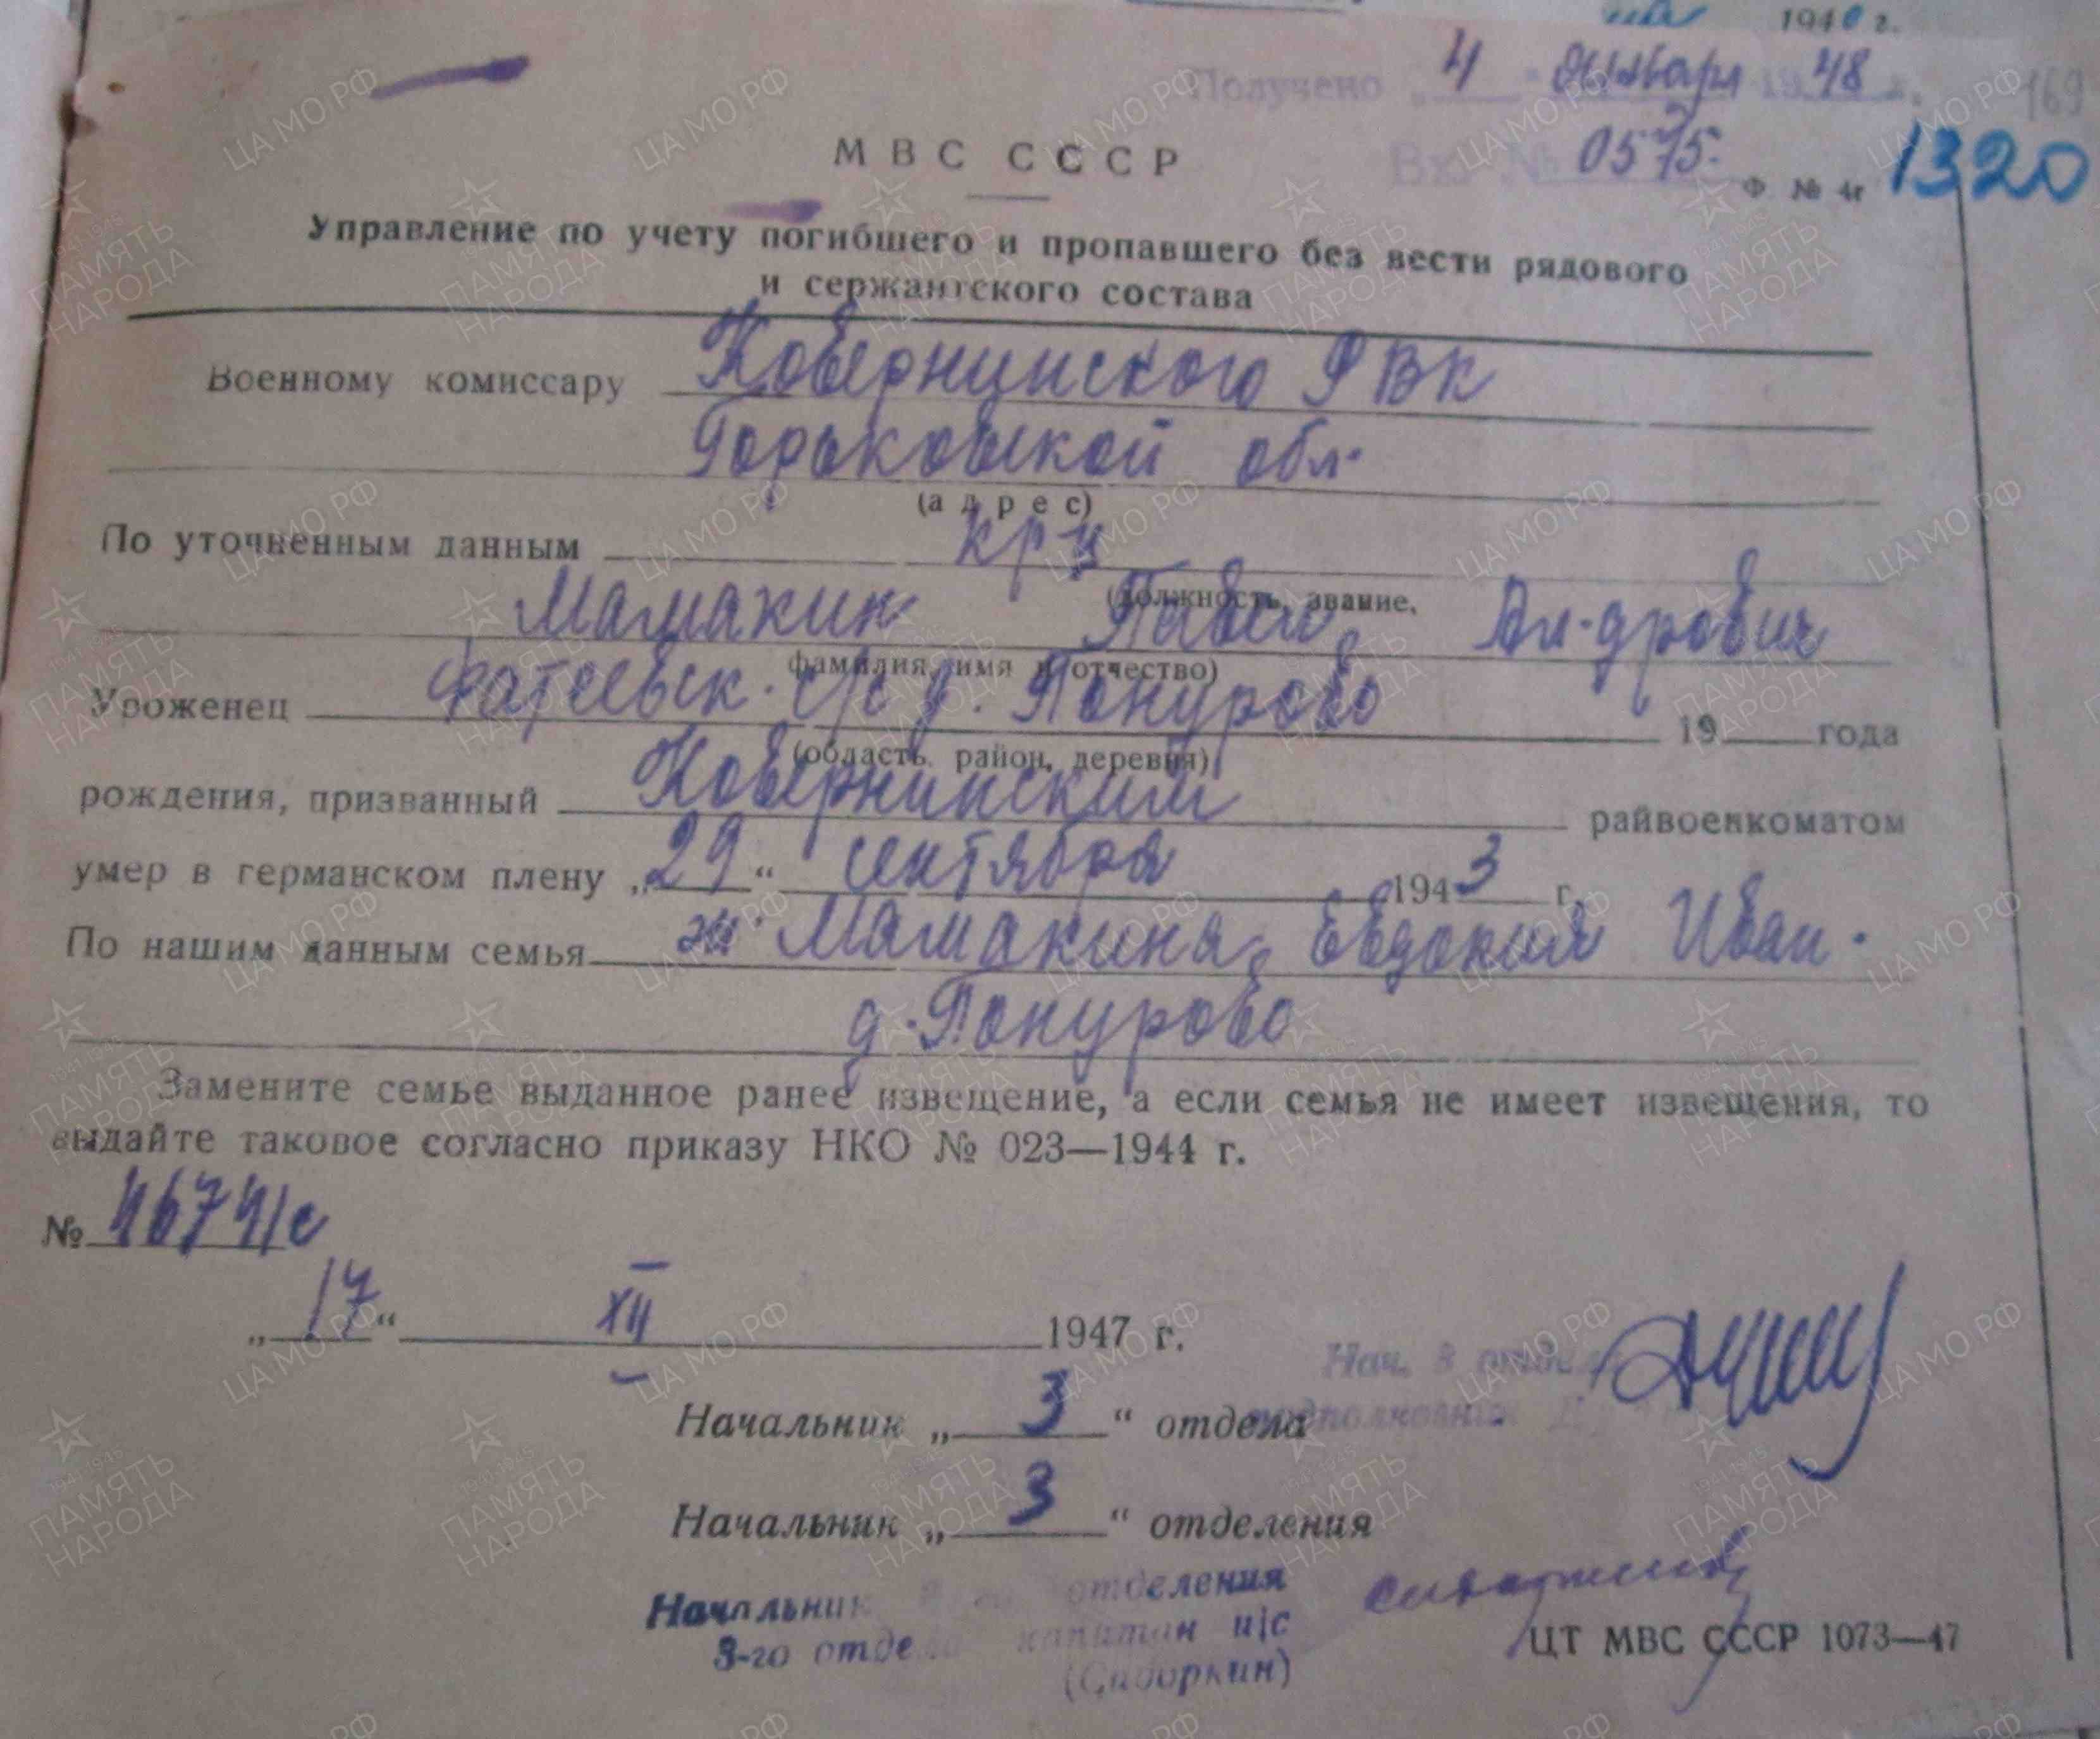 1948 г.
Получено „4" января 1948 г.
169
МВС СССР
Вх. № 0575.
Ф. № 4г
1320
Управление по учету погибшего и пропавшего без вести рядового
и сержантского состава
Военному комиссару Ковернинского РВК
Горьковской обл.
(адрес)
По уточненным данным кр-ц
(должность, звание,
Мамакин Павел Ал-дрович
фамилия, имя и отчество)
Уроженец Фатеевск. с/с д. Понурово 19 года
(область, район, деревня)
рождения, призванный Ковернинским райвоенкоматом
умер в германском плену „29“ сентября 1943 г.
По нашим данным семья ж. Мамакина Евдокия Иван.
д. Понурово
Замените семье выданное ранее извещение, а если семья не имеет извещения, то
выдайте таковое согласно приказу НКО № 023—1944 г.
№ 46741/с
„17“ XII 1947 г.
Нач. 3 отдела
Начальник „3“ отдела
подполковник
Начальник „3“ отделения
Начальник отделения
3-го отдела капитан и/с
(Сидоркин)
ЦТ МВС СССР 1073—47
ЦА МО РФ
ПАМЯТЬ НАРОДА
1941-1945